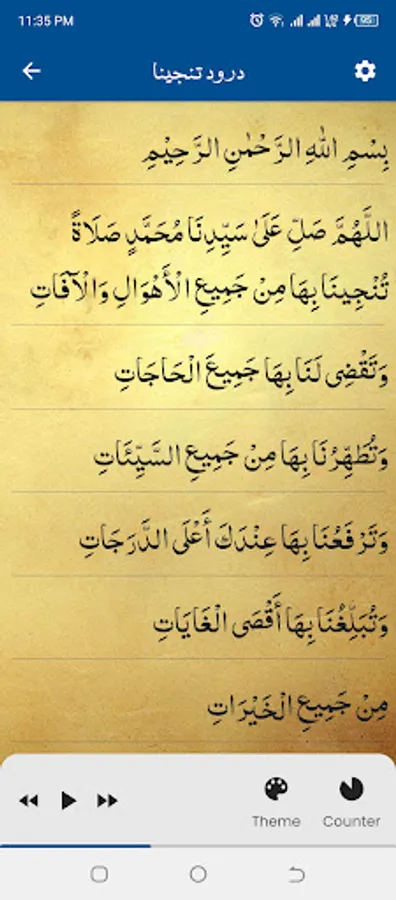 11:35 PM
95
درود تنجینا
بِسْمِ اللهِ الرَّحْمٰنِ الرَّحِيْمِ
اللَّهُمَّ صَلِّ عَلَىٰ سَيِّدِنَا مُحَمَّدٍ صَلَاةً
تُنْجِينَا بِهَا مِنْ جَمِيعِ الْأَهْوَالِ وَالْآفَاتِ
وَتَقْضِى لَنَا بِهَا جَمِيعَ الْحَاجَاتِ
وَتُطَهِّرُنَا بِهَا مِنْ جَمِيعِ السَّيِّئَاتِ
وَتَرْفَعُنَا بِهَا عِنْدَكَ أَعْلَى الدَّرَجَاتِ
وَتُبَلِّغُنَا بِهَا أَقْصَى الْغَايَاتِ
مِنْ جَمِيعِ الْخَيْرَاتِ
Theme Counter